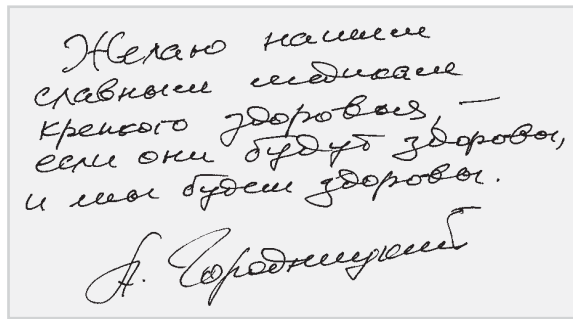 Желаю нашим
славным медикам
крепкого здоровья, —
если они будут здоровы,
и мы будем здоровы.
А. Городницкий